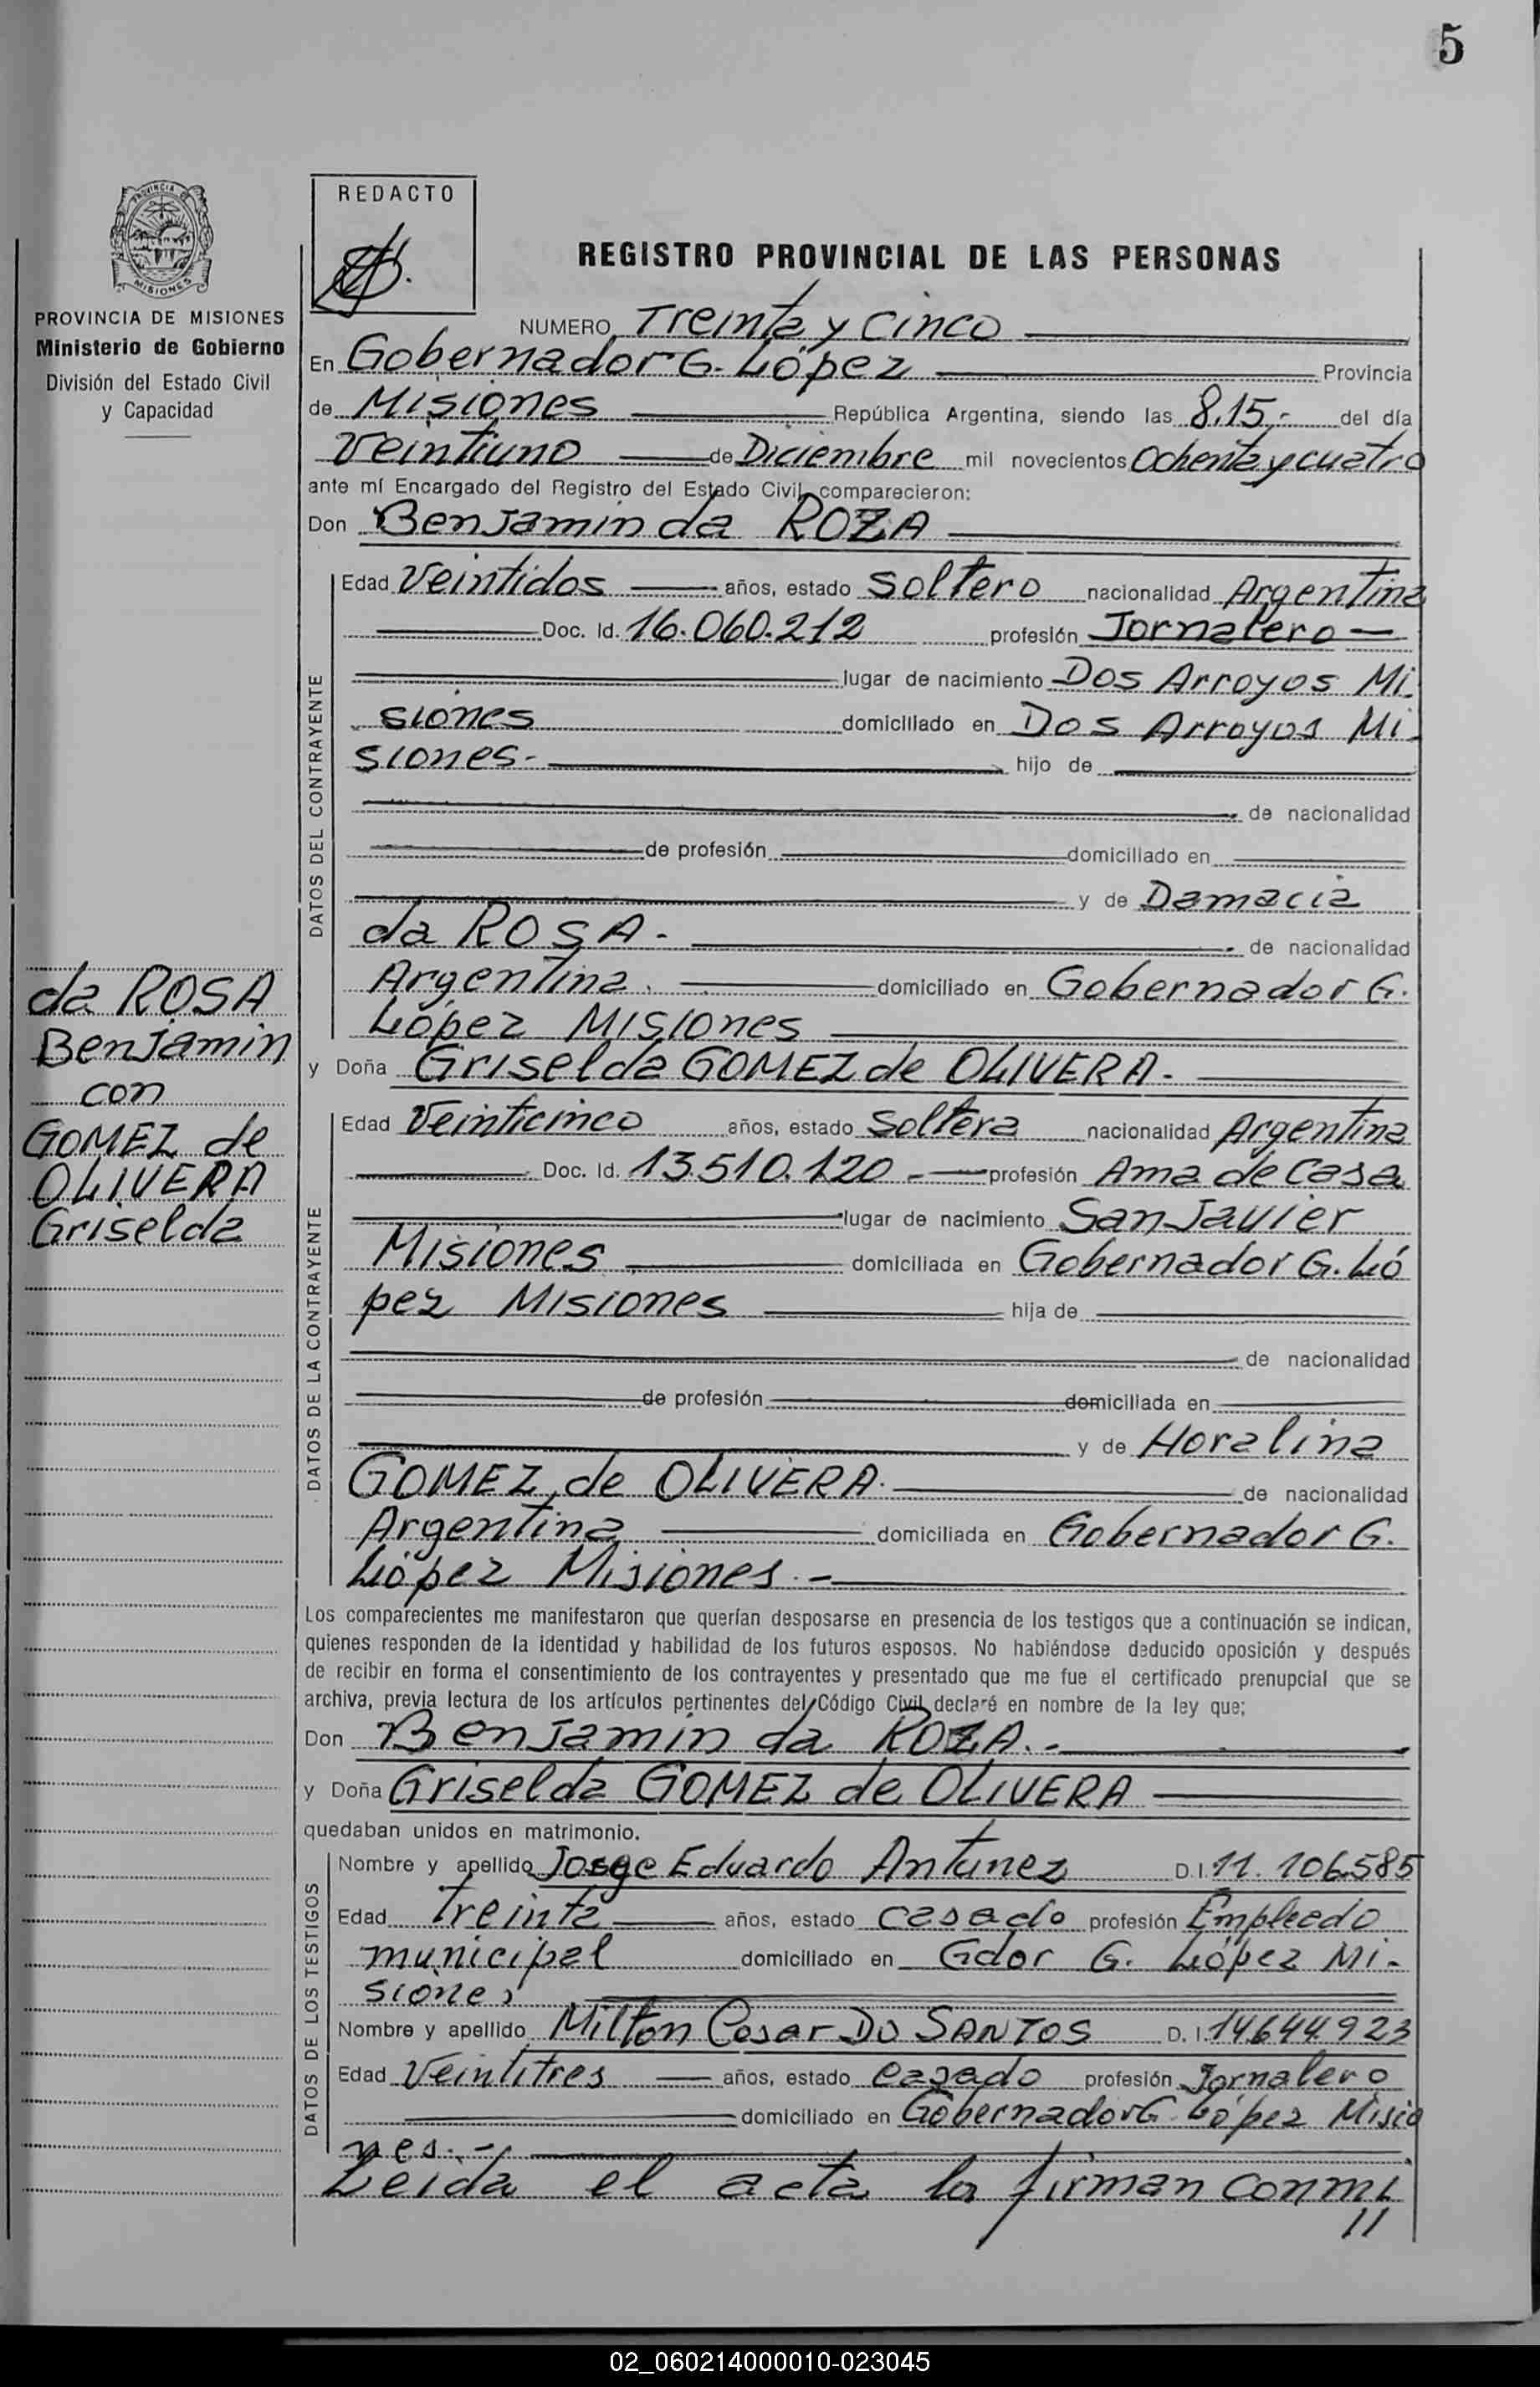 5
REDACTO
REGISTRO PROVINCIAL DE LAS PERSONAS
PROVINCIA DE MISIONES
Ministerio de Gobierno
División del Estado Civil
y Capacidad
da ROSA
Benjamin
con
GOMEZ de
OLIVERA
Griselda
NUMERO Treinta y Cinco
En Gobernador G. López Provincia
de Misiones República Argentina, siendo las 8,15.- del día
Veintiuno de Diciembre mil novecientos Ochenta y cuatro
ante mí Encargado del Registro del Estado Civil, comparecieron:
Don Benjamin da ROZA
DATOS DEL CONTRAYENTE
Edad Veintidos años, estado Soltero nacionalidad Argentina
Doc. Id. 16.060.212 profesión Jornalero
lugar de nacimiento Dos Arroyos Mi-
siones domiciliado en Dos Arroyos Mi-
siones.- hijo de
de nacionalidad
de profesión domiciliado en
y de Damacia
da ROSA.- de nacionalidad
Argentina. domiciliado en Gobernador G.
López Misiones
y Doña Griselda GOMEZ de OLIVERA.-
DATOS DE LA CONTRAYENTE
Edad Veinticinco años, estado Soltera nacionalidad Argentina
Doc. Id. 13.510.120.- profesión Ama de Casa
lugar de nacimiento San Javier
Misiones domiciliada en Gobernador G. Ló
pez Misiones hija de
de nacionalidad
de profesión domiciliada en
y de Horalina
GOMEZ de OLIVERA. de nacionalidad
Argentina domiciliada en Gobernador G.
López Misiones.-
Los comparecientes me manifestaron que querían desposarse en presencia de los testigos que a continuación se indican,
quienes responden de la identidad y habilidad de los futuros esposos. No habiéndose deducido oposición y después
de recibir en forma el consentimiento de los contrayentes y presentado que me fue el certificado prenupcial que se
archiva, previa lectura de los artículos pertinentes del Código Civil declaré en nombre de la ley que;
Don Benjamin da ROZA.-
y Doña Griselda GOMEZ de OLIVERA
quedaban unidos en matrimonio.
DATOS DE LOS TESTIGOS
Nombre y apellido Jorge Eduardo Antunez D.I. 11.106.585
Edad Treinta años, estado Casado profesión Empleado
municipal domiciliado en Gdor G. López Mi-
siones
Nombre y apellido Milton Cesar DO SANTOS D.I. 14.644.923
Edad Veintitres años, estado Casado profesión Jornalero
domiciliado en Gobernador G. López Misio
nes.-
Leida el acta la firman conmi
//
02_060214000010-023045